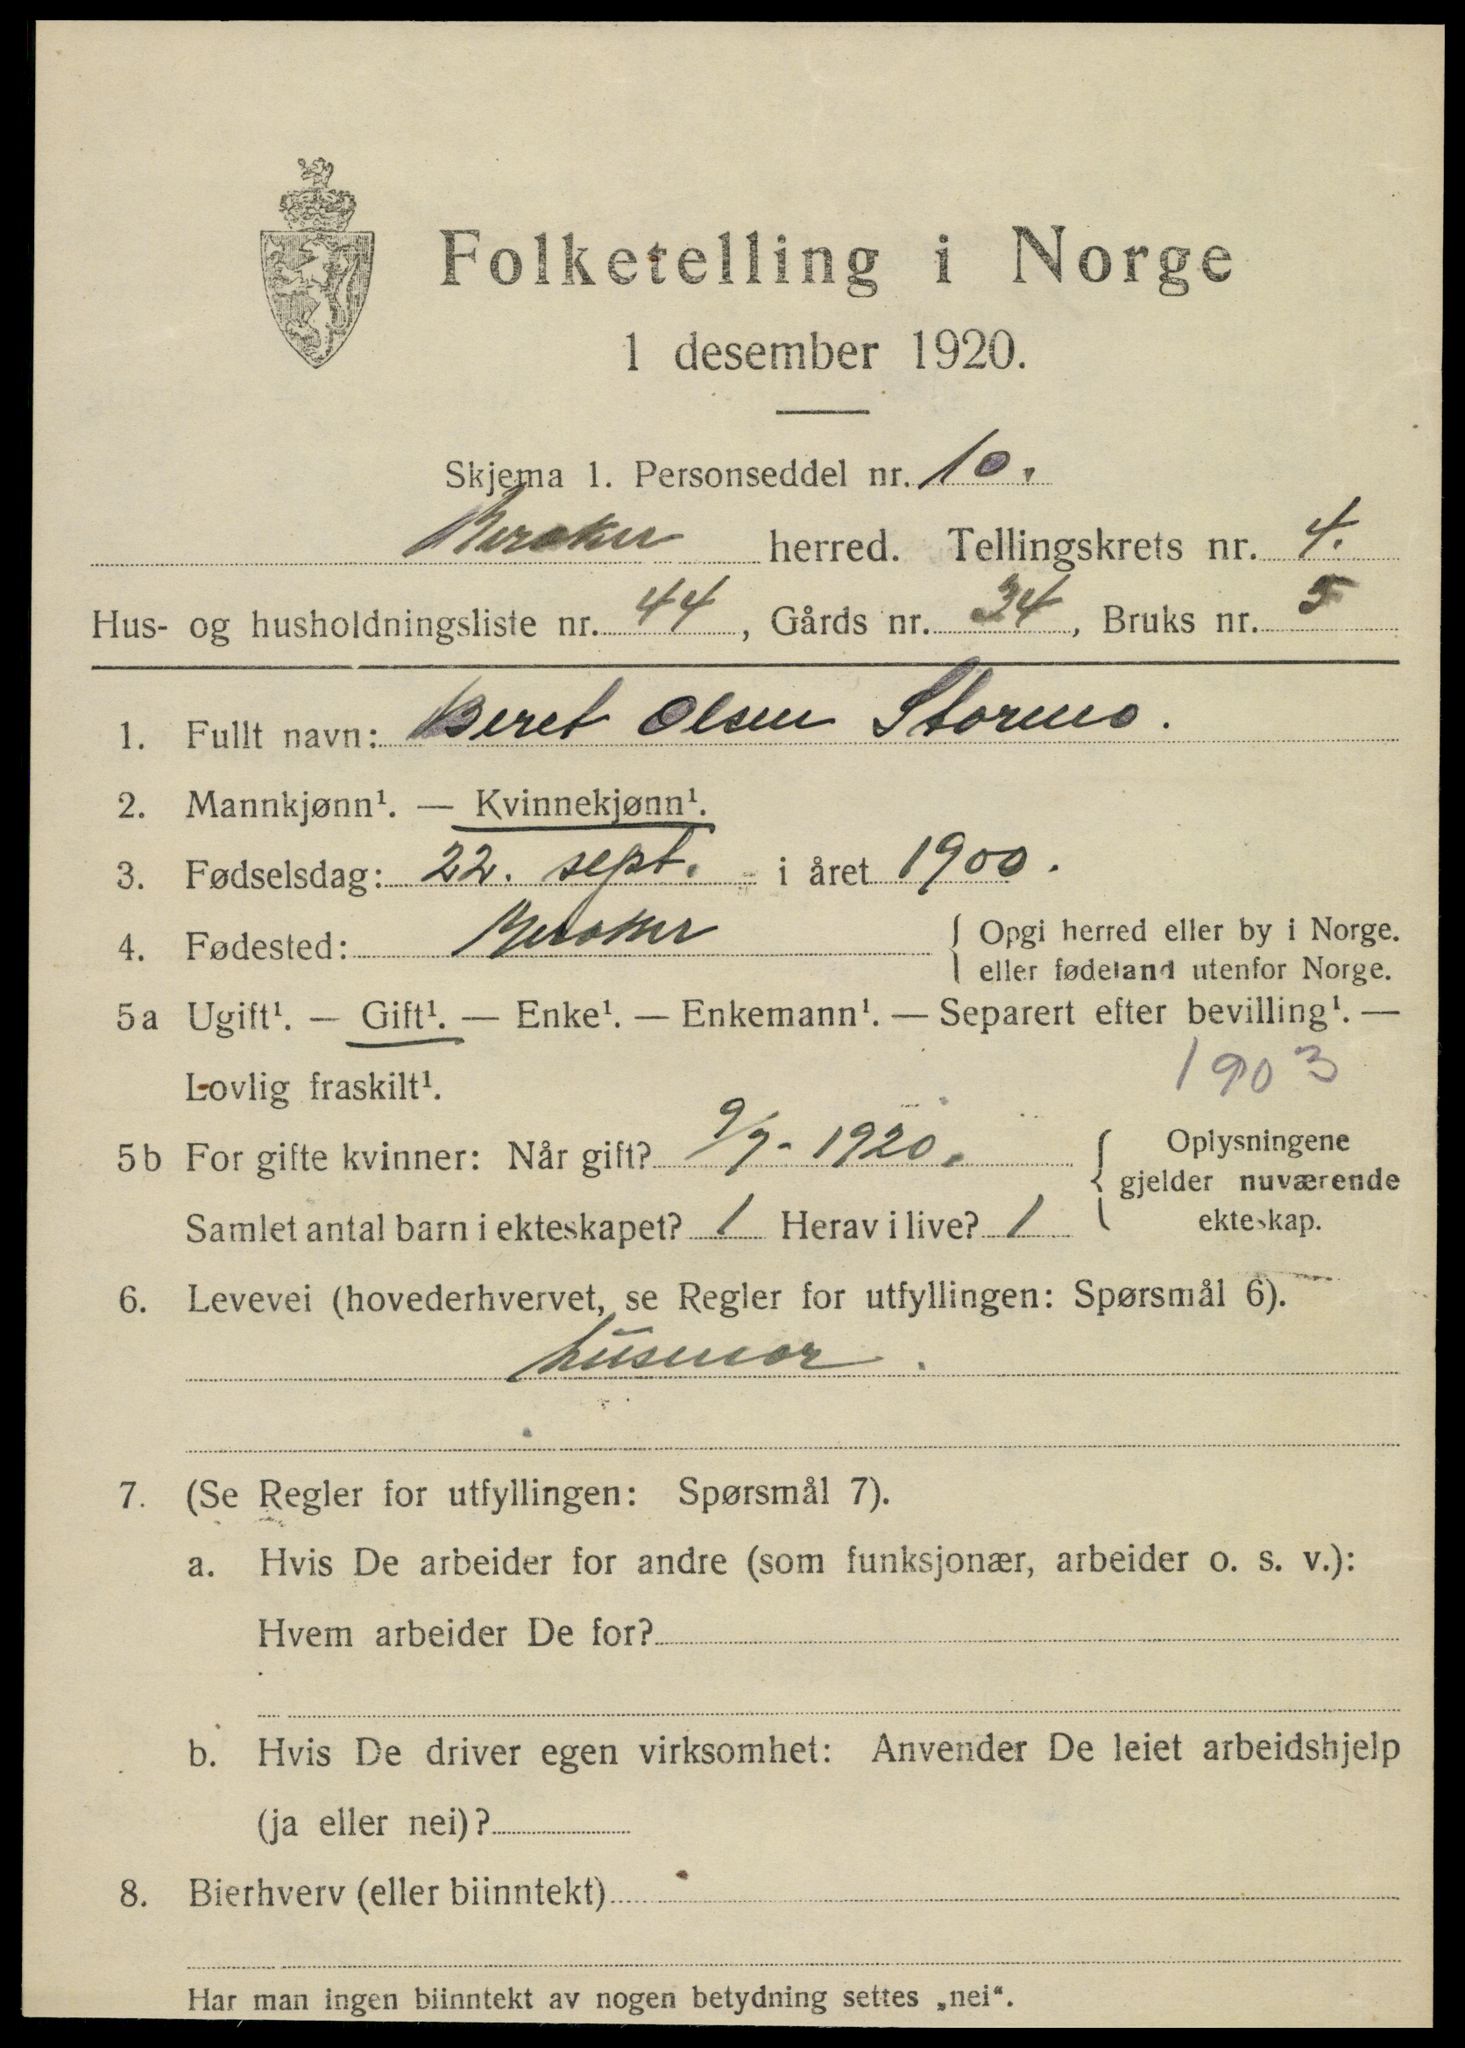 Folketelling i Norge
1 desember 1920.
Skjema 1. Personseddel nr. 10.
Meraker herred. Tellingskrets nr. 4.
Hus- og husholdningsliste nr. 44, Gårds nr. 34, Bruks nr. 5
1. Fullt navn: Beret Olsen Stormo.
2. Mannkjønn¹. — Kvinnekjønn¹.
3. Fødselsdag: 22. sept. i året 1900.
4. Fødested: Meraker { Opgi herred eller by i Norge.
eller fødeland utenfor Norge.
5a Ugift¹. — Gift¹. — Enke¹. — Enkemann¹. — Separert efter bevilling¹. —
Lovlig fraskilt¹. 1903
5b For gifte kvinner: Når gift? 9/7- 1920. { Oplysningene
gjelder nuværende
Samlet antal barn i ekteskapet? 1 Herav i live? 1 ekteskap.
6. Levevei (hovederhvervet, se Regler for utfyllingen: Spørsmål 6).
husmor.
7. (Se Regler for utfyllingen: Spørsmål 7).
a. Hvis De arbeider for andre (som funksjonær, arbeider o. s. v.):
Hvem arbeider De for?
b. Hvis De driver egen virksomhet: Anvender De leiet arbeidshjelp
(ja eller nei)?
8. Bierhverv (eller biinntekt)
Har man ingen biinntekt av nogen betydning settes „nei“.